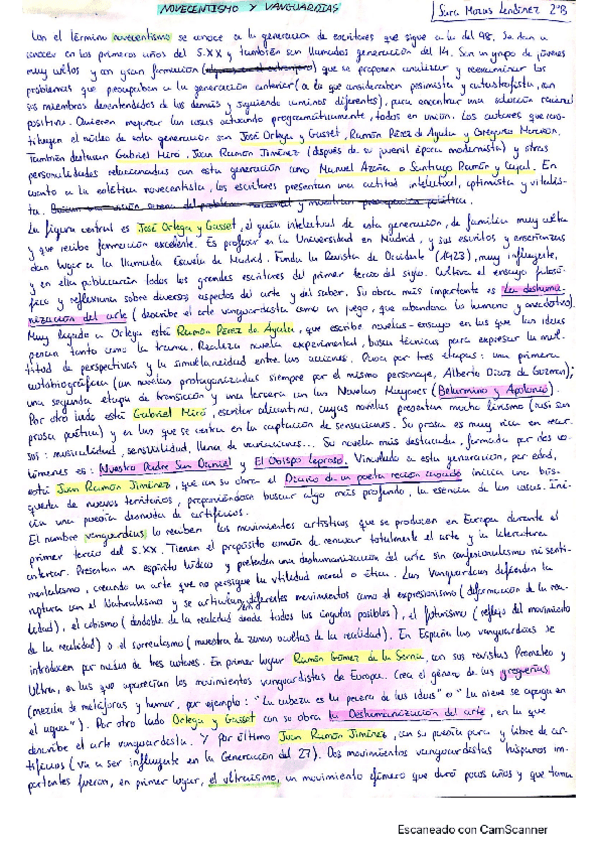 NOVECENTISMO Y VANGUARDIAS
Sara Moras Lendínez 2ºB
Con el término novecentismo se conoce a la generación de escritores que sigue a la del 98. Se dan a
conocer en los primeros años del S.XX y también son llamados generación del 14. Son un grupo de jóvenes
muy cultos y con gran formación que se proponen analizar y reexaminar los
problemas que preocupaban a la generación anterior (a la que consideraban pesimista y catastrofista, con
sus miembros desentendidos de los demás y siguiendo caminos diferentes), para encontrar una solución racional
positiva. Quieren mejorar las cosas actuando programáticamente, todos en unión. Los autores que cons-
tituyen el núcleo de esta generación son José Ortega y Gasset, Ramón Pérez de Ayala y Gregorio Marañón.
También destacan Gabriel Miró, Juan Ramón Jiménez (después de su juvenil época modernista) y otras
personalidades relacionadas con esta generación como Manuel Azaña o Santiago Ramón y Cajal. En
cuanto a la estética novecentista, los escritores presentan una actitud intelectual, optimista y vitalis-
ta.
La figura central es José Ortega y Gasset, el guía intelectual de esta generación, de familia muy culta
y que recibe formación excelente. Es profesor en la Universidad en Madrid, y sus escritos y enseñanzas
dan lugar a la llamada Escuela de Madrid. Funda la Revista de Occidente (1923), muy influyente,
y en ella publicarán todos los grandes escritores del primer tercio del siglo. Cultiva el ensayo filosó-
fico y reflexiona sobre diversos aspectos del arte y del saber. Su obra más importante es La deshuma-
nización del arte (describe el arte vanguardista como un juego, que abandona lo humano y anecdótico).
Muy ligado a Ortega está Ramón Pérez de Ayala, que escribe novelas-ensayo en las que las ideas
pesan tanto como la trama. Realiza novela experimental, busca técnicas para expresar la mul-
titud de perspectivas y la simultaneidad entre las acciones. Pasa por tres etapas: una primera
autobiográfica (un novelas protagonizadas siempre por el mismo personaje, Alberto Díaz de Guzmán);
una segunda etapa de transición y una tercera con las Novelas Mayores (Belarmino y Apolonio).
Por otro lado está Gabriel Miró, escritor alicantino, cuyas novelas presentan mucho lirismo (casi son
prosa poética) y en las que se centra en la captación de sensaciones. Su prosa es muy rica en recur-
sos: musicalidad, sensualidad, llena de variaciones... Su novela más destacada, formada por dos vo-
lúmenes es: Nuestro Padre San Daniel y El Obispo Leproso. Vinculado a esta generación, por edad,
está Juan Ramón Jiménez, que con su obra el Diario de un poeta recién casado inicia una bús-
queda de nuevos territorios, proponiéndose buscar algo más profundo, la esencia de las cosas. Ini-
cia una poesía desnuda de artificios.
El nombre vanguardias lo reciben los movimientos artísticos que se producen en Europa durante el
primer tercio del S.XX. Tienen el propósito común de renovar totalmente el arte y la literatura
anterior. Presentan un espíritu lúdico y pretenden una deshumanización del arte sin confesionalismo ni senti-
mentalismo, creando un arte que no persigue la utilidad moral o ética. Las Vanguardias defienden la
ruptura con el Naturalismo y se articulan en diferentes movimientos como el expresionismo (deformación de la rea-
lidad), el cubismo (desdoble de la realidad desde todos los ángulos posibles), el futurismo (reflejo del movimiento
de la realidad) o el surrealismo (muestra de zonas ocultas de la realidad). En España las vanguardias se
introducen por medio de tres autores. En primer lugar Ramón Gómez de la Serna, con sus revistas Prometeo y
Ultra, en las que aparecían los movimientos vanguardistas de Europa. Crea el género de las greguerías
(mezcla de metáforas y humor, por ejemplo: "La cabeza es la pecera de las ideas" o "La nieve se apaga en
el agua"). Por otro lado Ortega y Gasset con su obra la Deshumanización del arte, en la que
describe el arte vanguardista. Y por último Juan Ramón Jiménez, con su poesía pura y libre de ar-
tificios (va a ser influyente en la Generación del 27). Dos movimientos vanguardistas hispanos im-
portantes fueron, en primer lugar, el ultraísmo, un movimiento efímero que duró pocos años y que toma
Escaneado con CamScanner